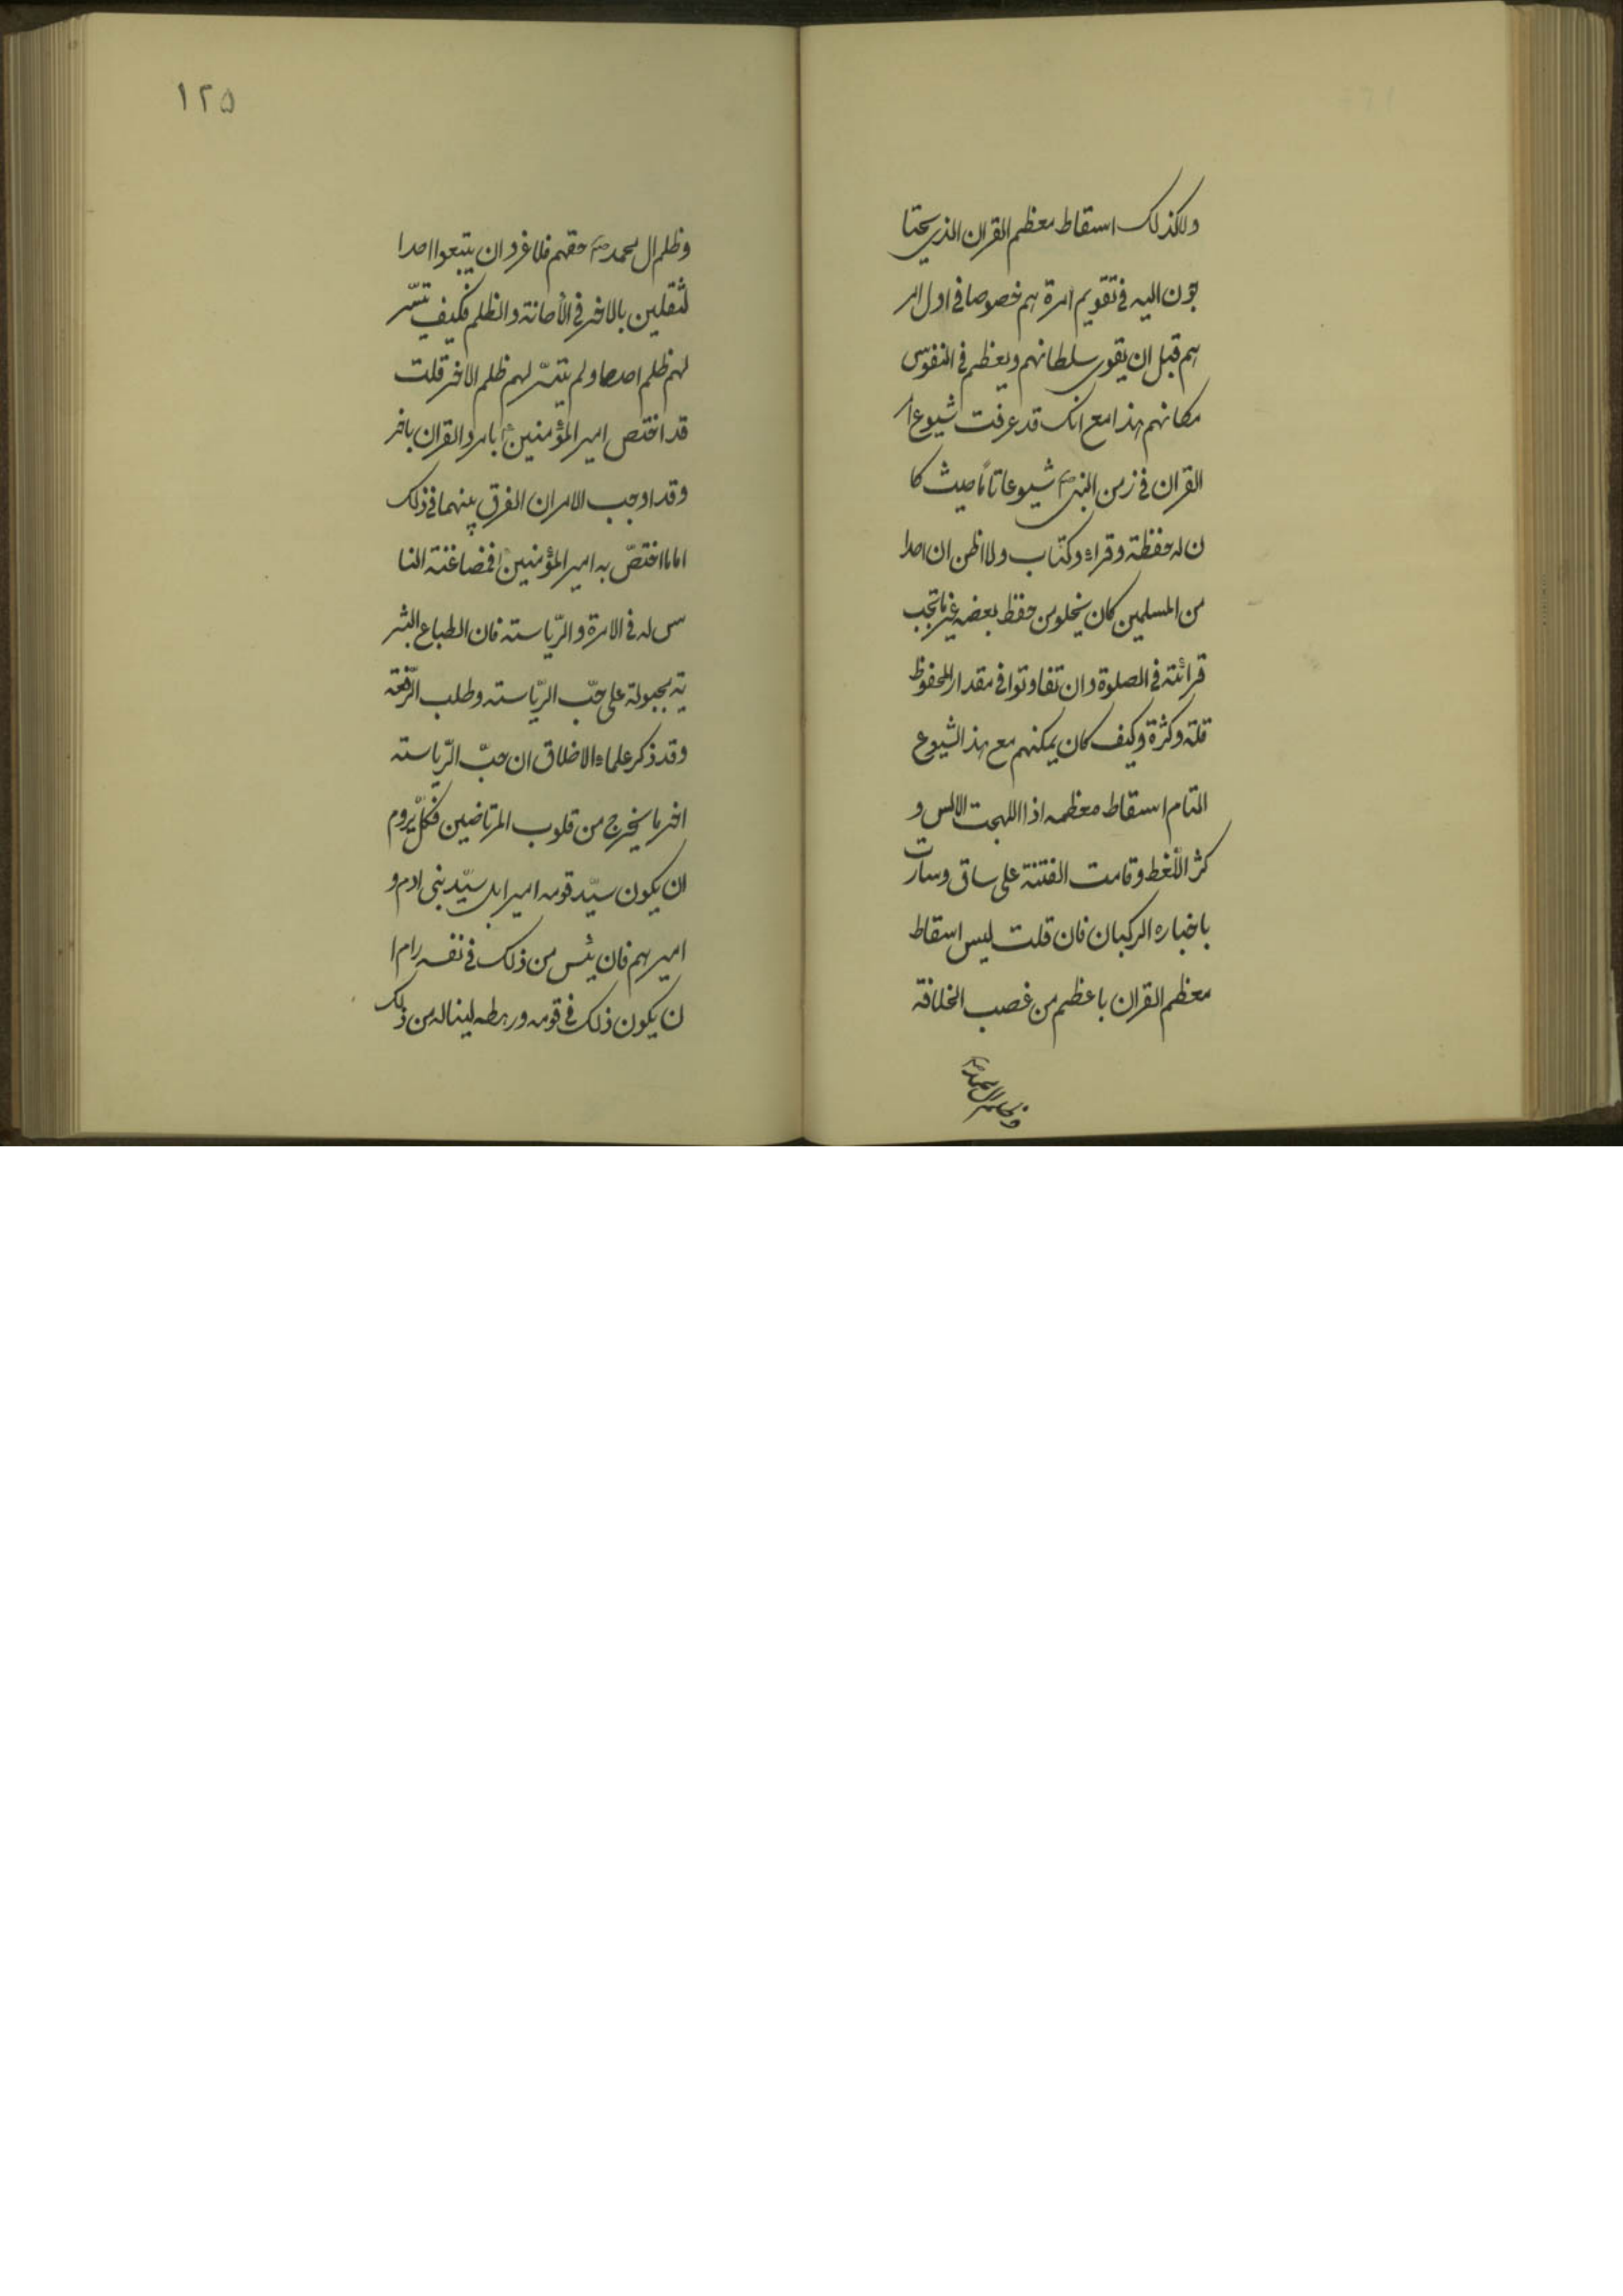 ولاكذلك اسقاط معظم القران الذى يحتا
جون اليه فى تقويم امرة هم خصوصا فى اول امر
هم قبل ان يقوى سلطانهم ويعظم فى النفوس
مكانهم هذا مع انك قد عرفت شيوع ا
لقران فى زمن النبى ص شيوعا تاما حيث كا
ن له حفظة وقراء وكتاب ولا اظن ان احدا
من المسلمين كان يخلو من حفظ بعضه غير ما تجب
قرائته فى الصلوة وان تفاوتوا فى مقدار المحفوظ
قلة وكثرة وكيف كان يمكنهم مع هذا الشيوع
التام اسقاط معظمه اذا اللهجت الالس و
كثر اللّغط وقامت الفتنة على ساق وسارت
باخباره الركبان فان قلت ليس اسقاط
معظم القران باعظم من غصب الخلافة
وظلم ال محمد ص
١٢۵
وظلم ال محمد ص حقهم فلا غرو ان يتبعوا احدا
لثقلين بالاخر فى الأهانة والظلم فكيف تيسّر
لهم ظلم احدهما ولم يتيسّر لهم ظلم الاخر قلت
قد اختص امير المؤمنين ع بامر والقران باخر
وقد اوجب الامران الفرق بينهما فى ذلك
اما ما اختصّ به امير المؤمنين ع فضاغنة النا
س له فى الامرة والرّياسته فان الطباع البشر
ية مجبولة على حبّ الرّياسته وطلب الرّفعة
وقد ذكر علماء الاخلاق ان حبّ الرّياسته
اخر ما يخرج من قلوب المرتاضين فكلّ يروم
ان يكون سيّد قومه اميرا بل سيّد بنى ادم و
اميرهم فان يئس من ذلك فى نفسه رام ا
ن يكون ذلك فى قومه ورهطه لينا له من ذلك